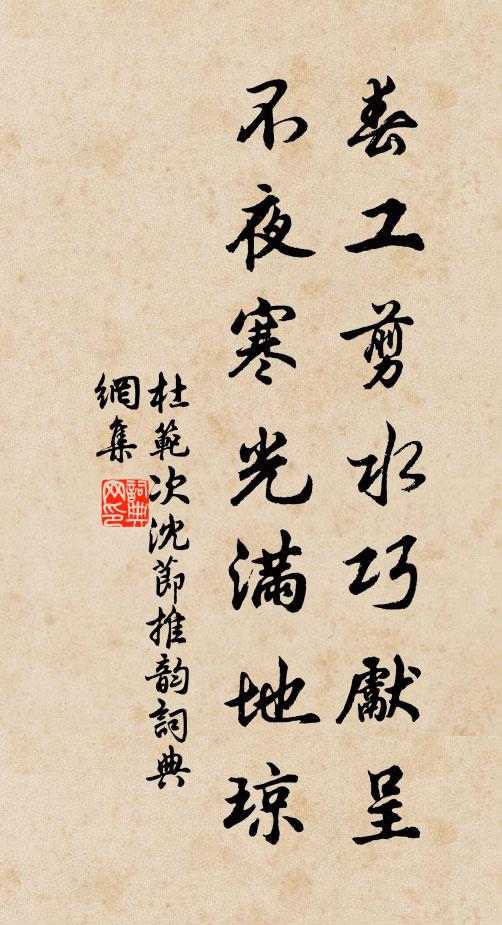 春工剪水巧獻呈
不夜寒光滿地琼
杜範次沈節推韵詞典
網集
詞典網印